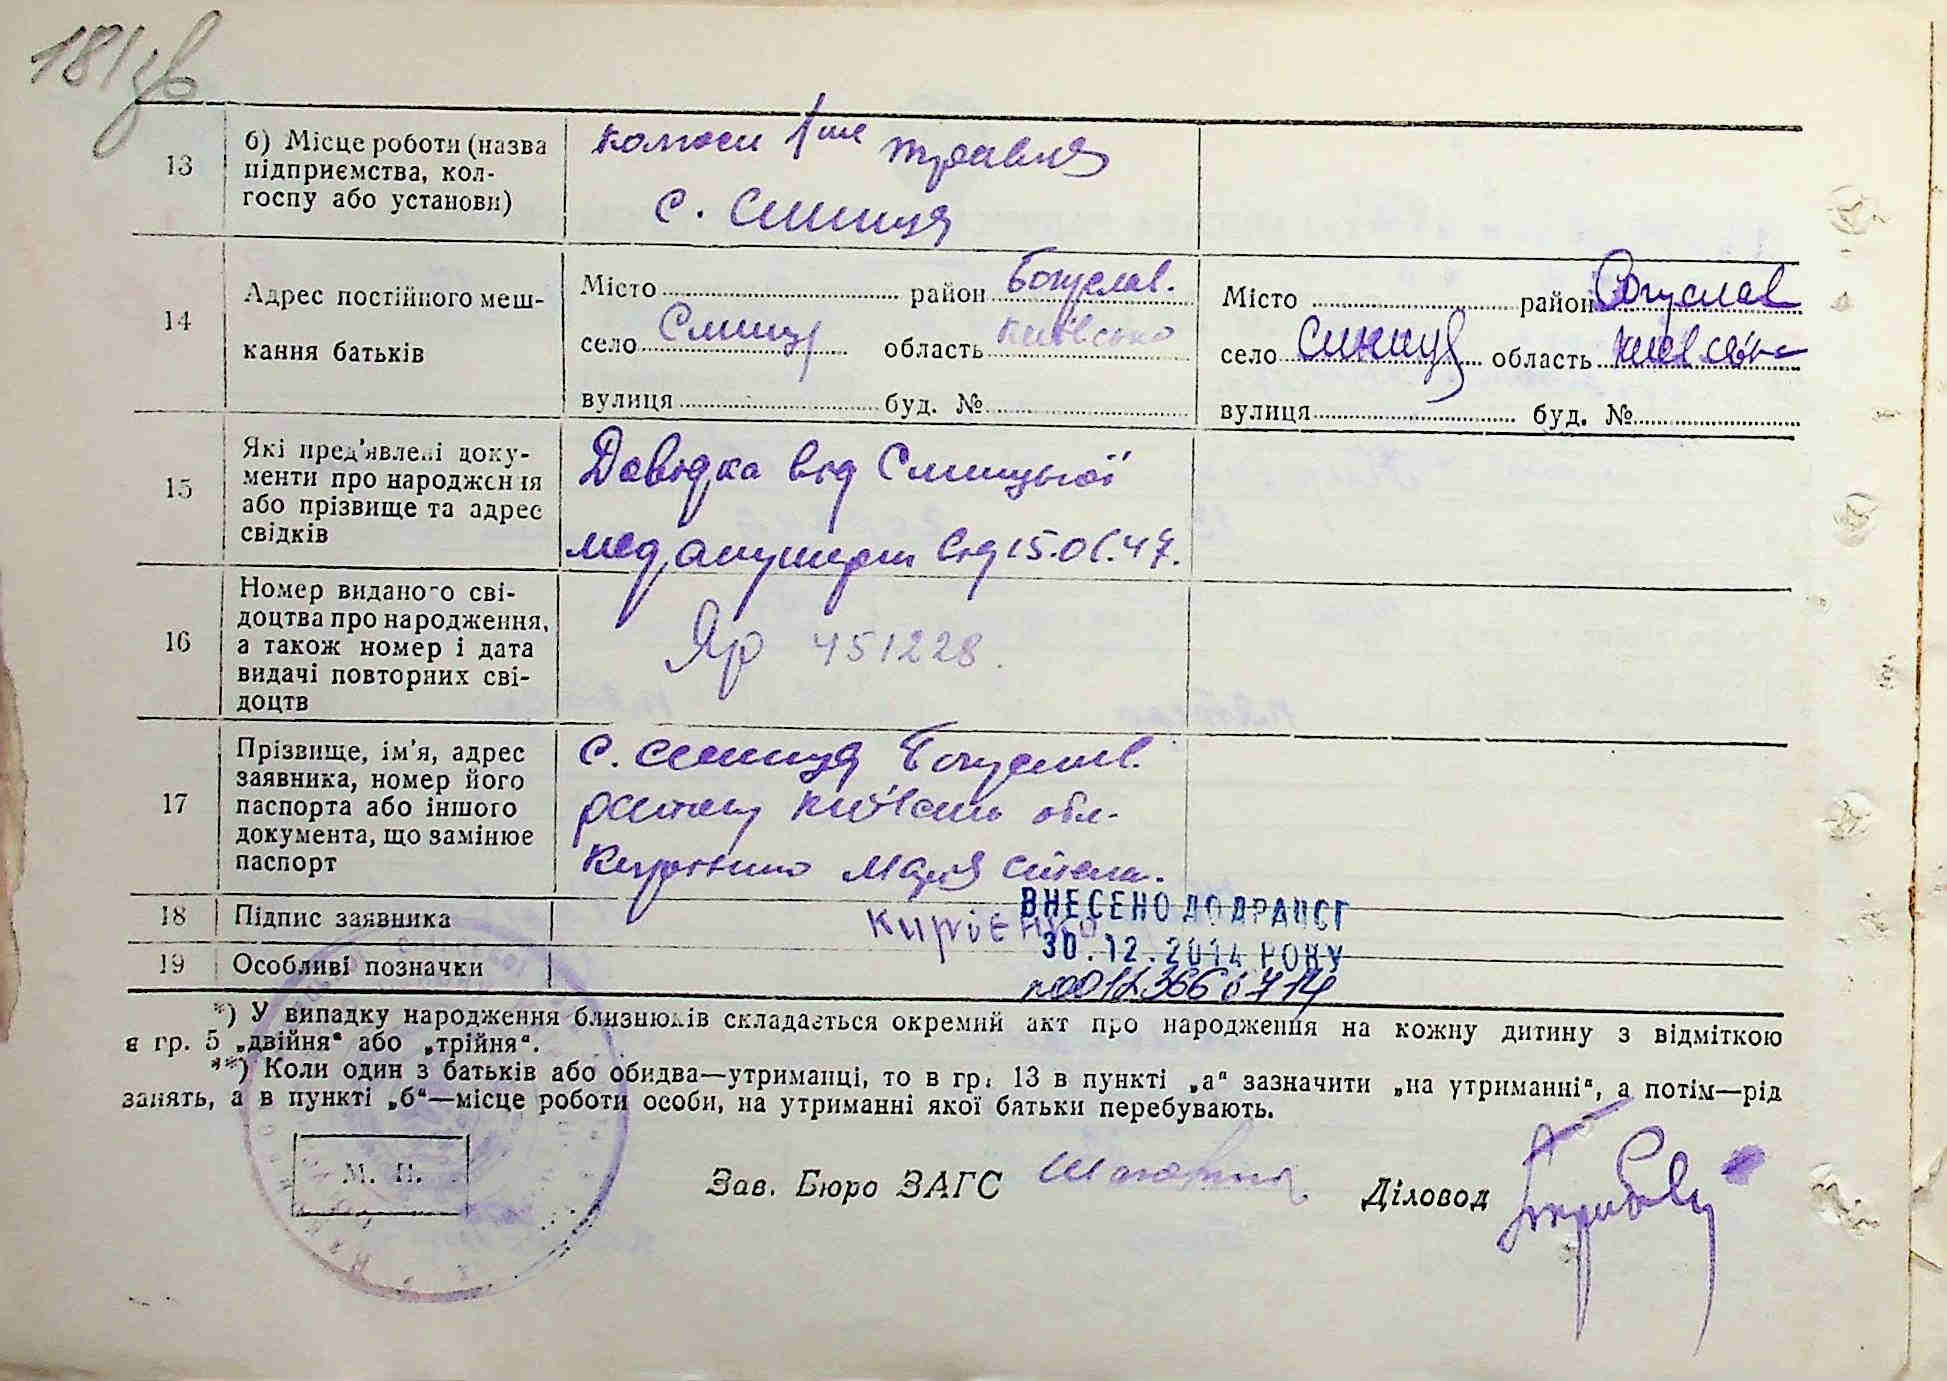 181зв
13
б) Місце роботи (назва
підприємства, кол-
госпу або установи)
1ше травня
с. Синиця
14
Адрес постійного меш-
кання батьків
Місто район Богуслав.
село Синиця область Київсько
вулиця буд. №
Місто район Богуслав
село Синиця область Київсько
вулиця буд. №
15
Які пред'явлені доку-
менти про народження
або прізвище та адрес
свідків
Довідка від Синицької
мед акушерки від 15.01.47.
16
Номер виданого сві-
доцтва про народження,
а також номер і дата
видачі повторних сві-
доцтв
Яр 451228.
17
Прізвище, ім'я, адрес
заявника, номер його
паспорта або іншого
документа, що замінює
паспорт
с. Синиця Богуслав.
району Київськ обл.
Кириєнко Марія
18 Підпис заявника
Кирієнко
ВНЕСЕНО ДО ДРАЦСГ
30.12.2014 РОКУ
19 Особливі позначки
*) У випадку народження близнюків складається окремий акт про народження на кожну дитину з відміткою
в гр. 5 „двійня“ або „трійня“.
**) Коли один з батьків або обидва—утриманці, то в гр. 13 в пункті „а“ зазначити „на утриманні“, а потім—рід
занять, а в пункті „б“—місце роботи особи, на утриманні якої батьки перебувають.
М. П.
Зав. Бюро ЗАГС
Діловод